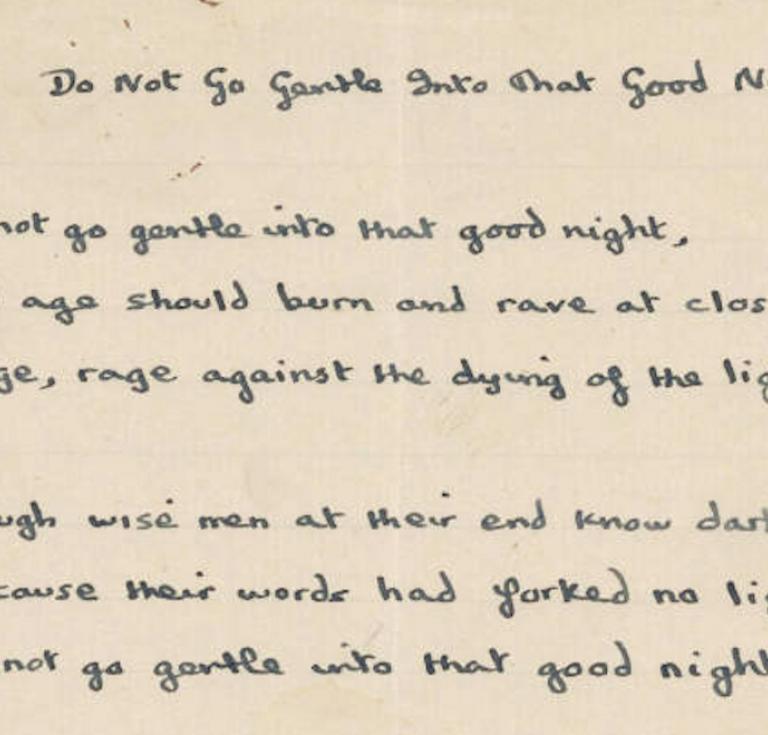 Do Not Go Gentle Into That Good N
not go gentle into that good night,
age should burn and rave at clos
ge, rage against the dying of the lig
ugh wise men at their end know dark
cause their words had forked no lig
not go gentle into that good night